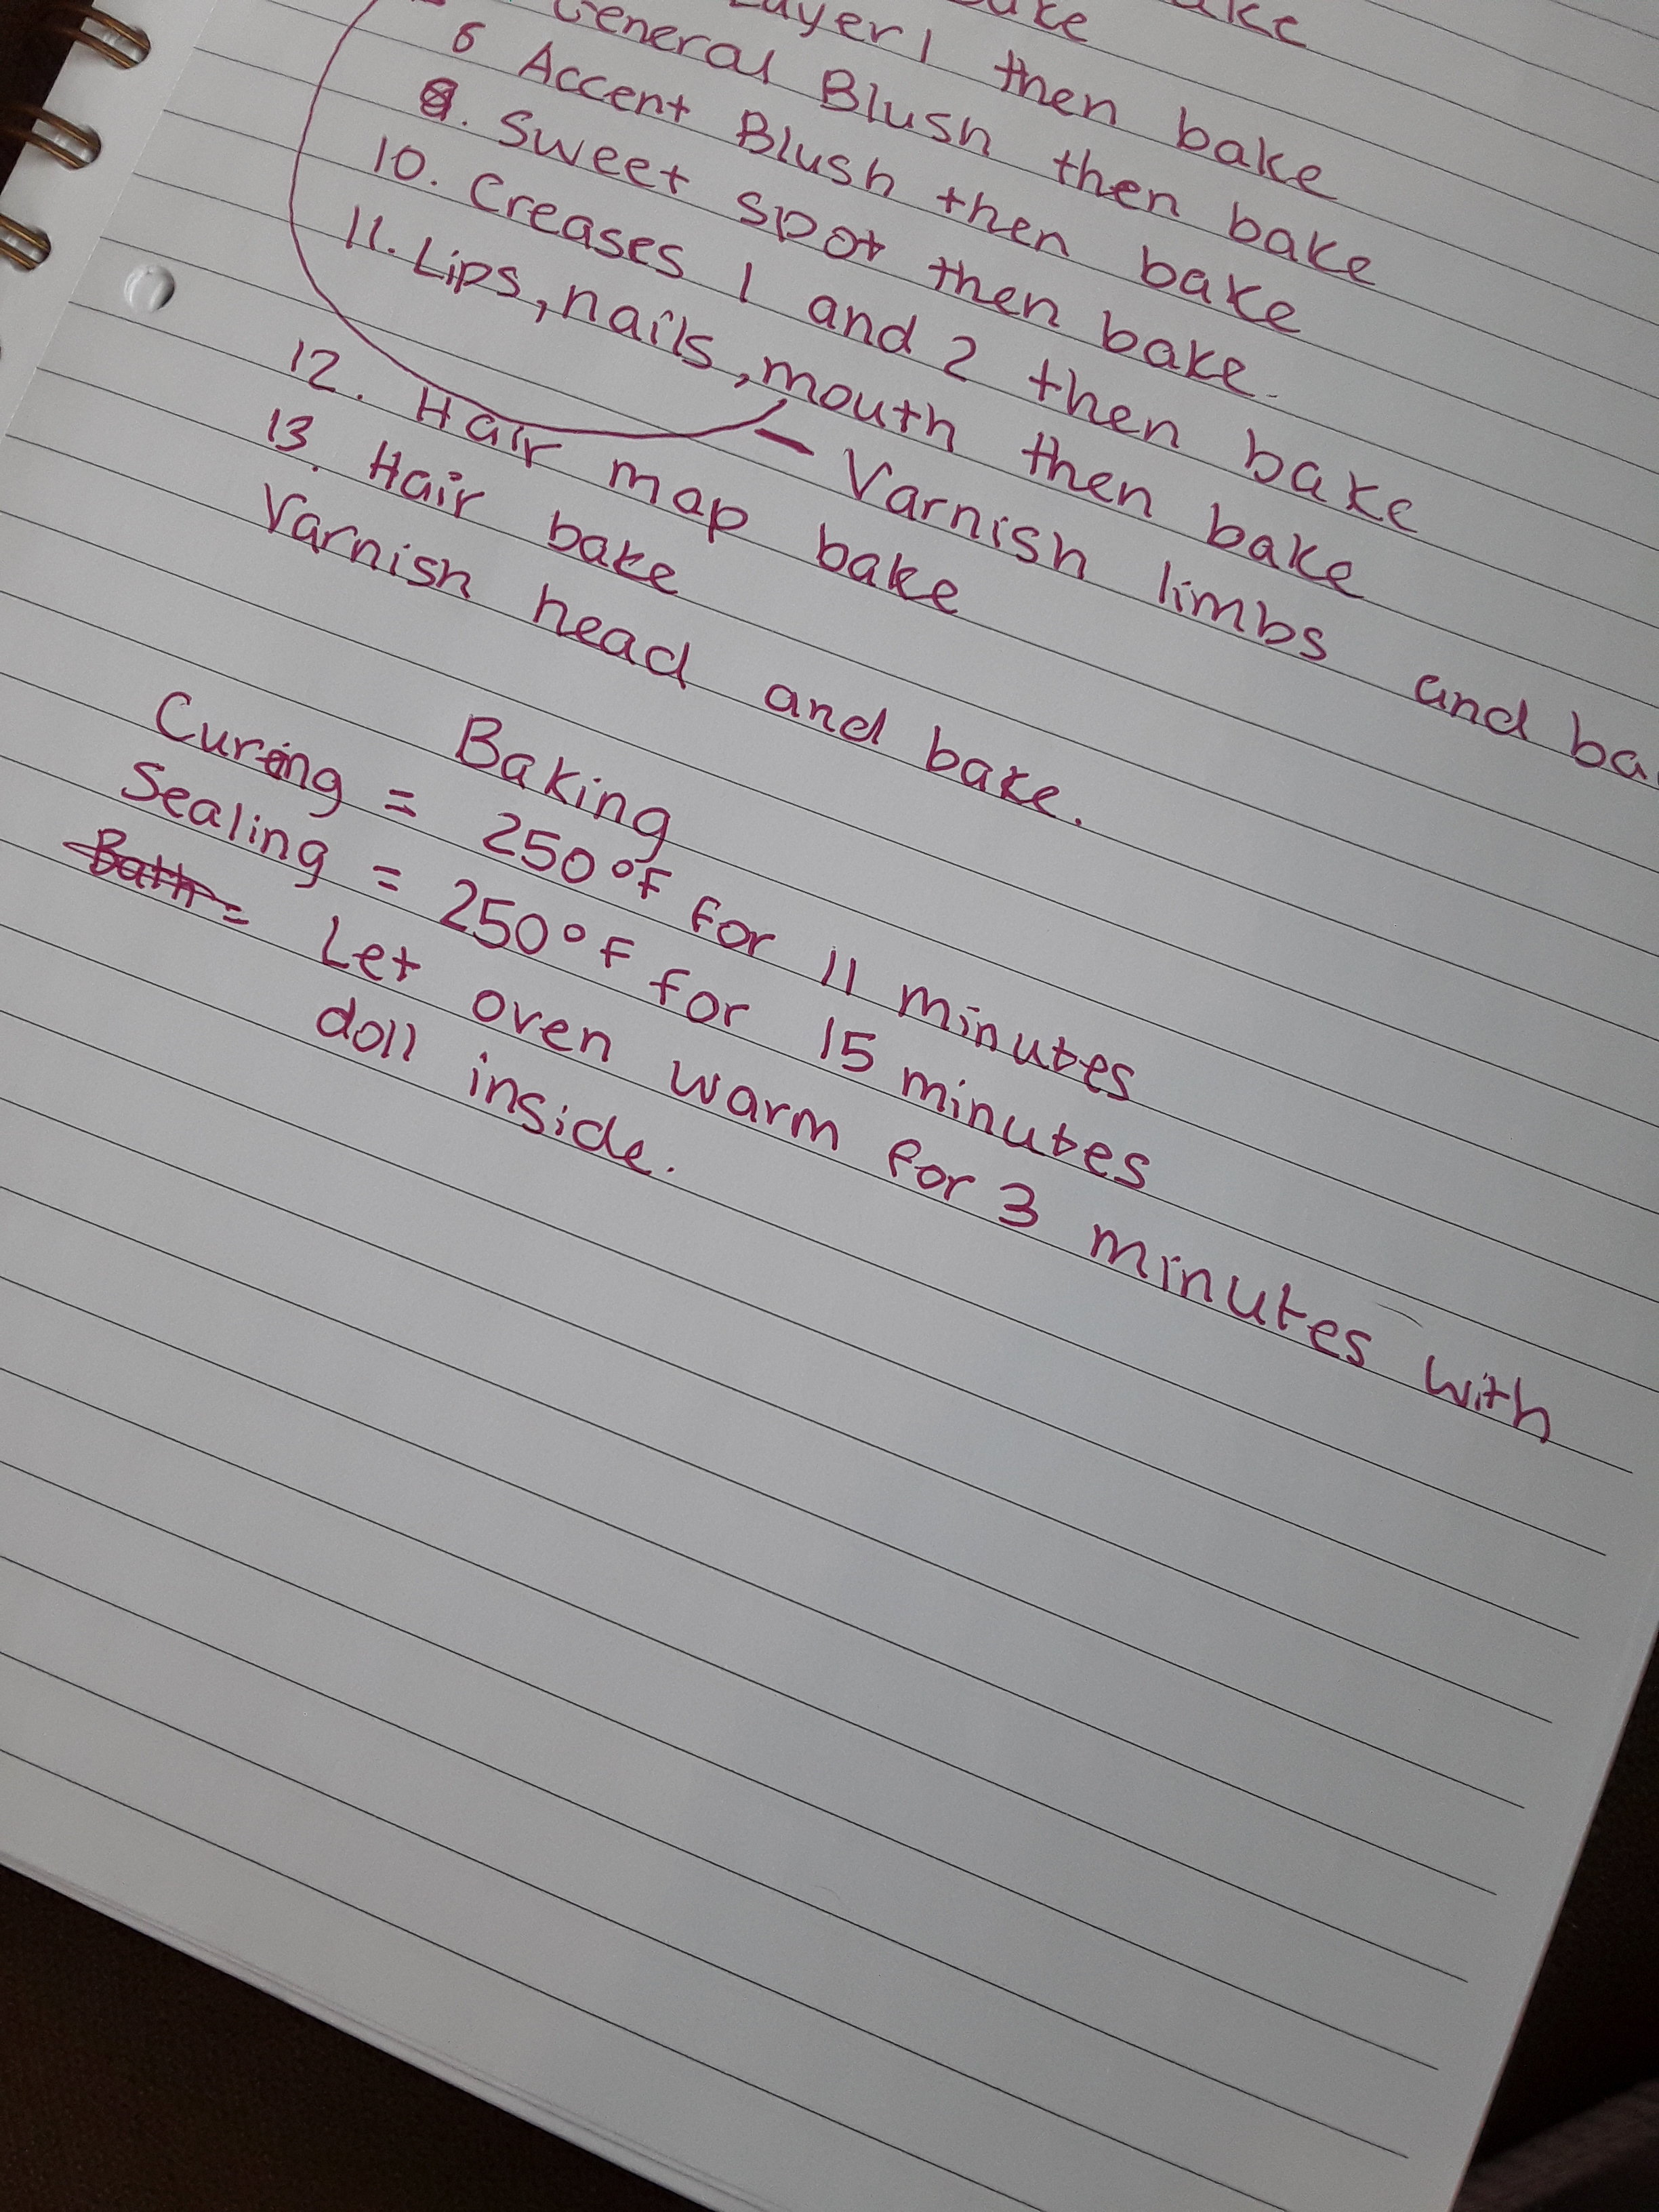 Layer 1 then bake
General Blush then bake
6 Accent Blush then bake
9. Sweet spot then bake.
10. Creases 1 and 2 then bake
11. Lips, nails, mouth then bake
— Varnish limbs and ba
12. Hair map bake
13. Hair bake
Varnish head and bake.
Baking
Curing = 250°F for 11 minutes
Sealing = 250°F for 15 minutes
Bath = Let oven warm for 3 minutes with
doll inside.